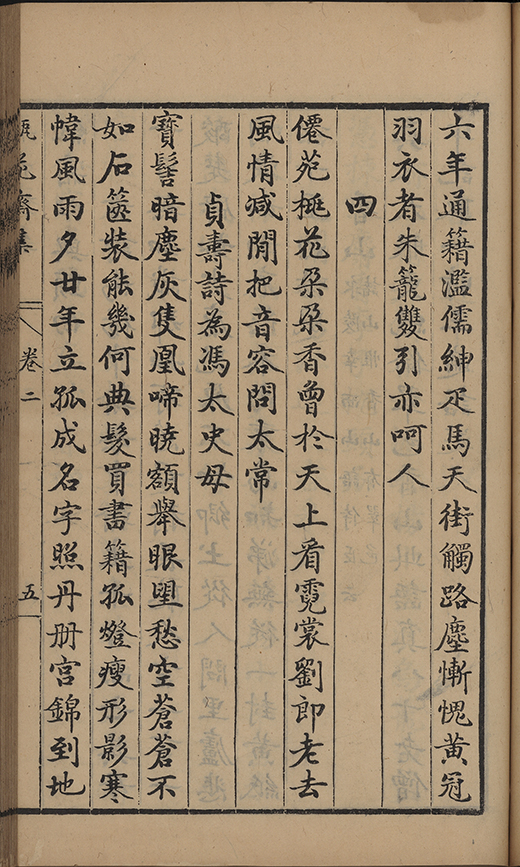 六年通籍濫儒紳疋馬天街觸路塵慚愧黃冠
羽衣者朱籠雙引亦呵人
四
僊苑桃花朶朶香曾於天上看霓裳劉郎老去
風情减閒把音容問太常
貞壽詩為馮太史母
寶髻暗塵灰隻凰啼曉額舉眼望愁空蒼蒼不
如石篋裝能幾何典髮買書籍孤燈瘦形影寒
幃風雨夕廿年立孤成名字照丹册宮錦到地
瓶花齋集 卷二 五